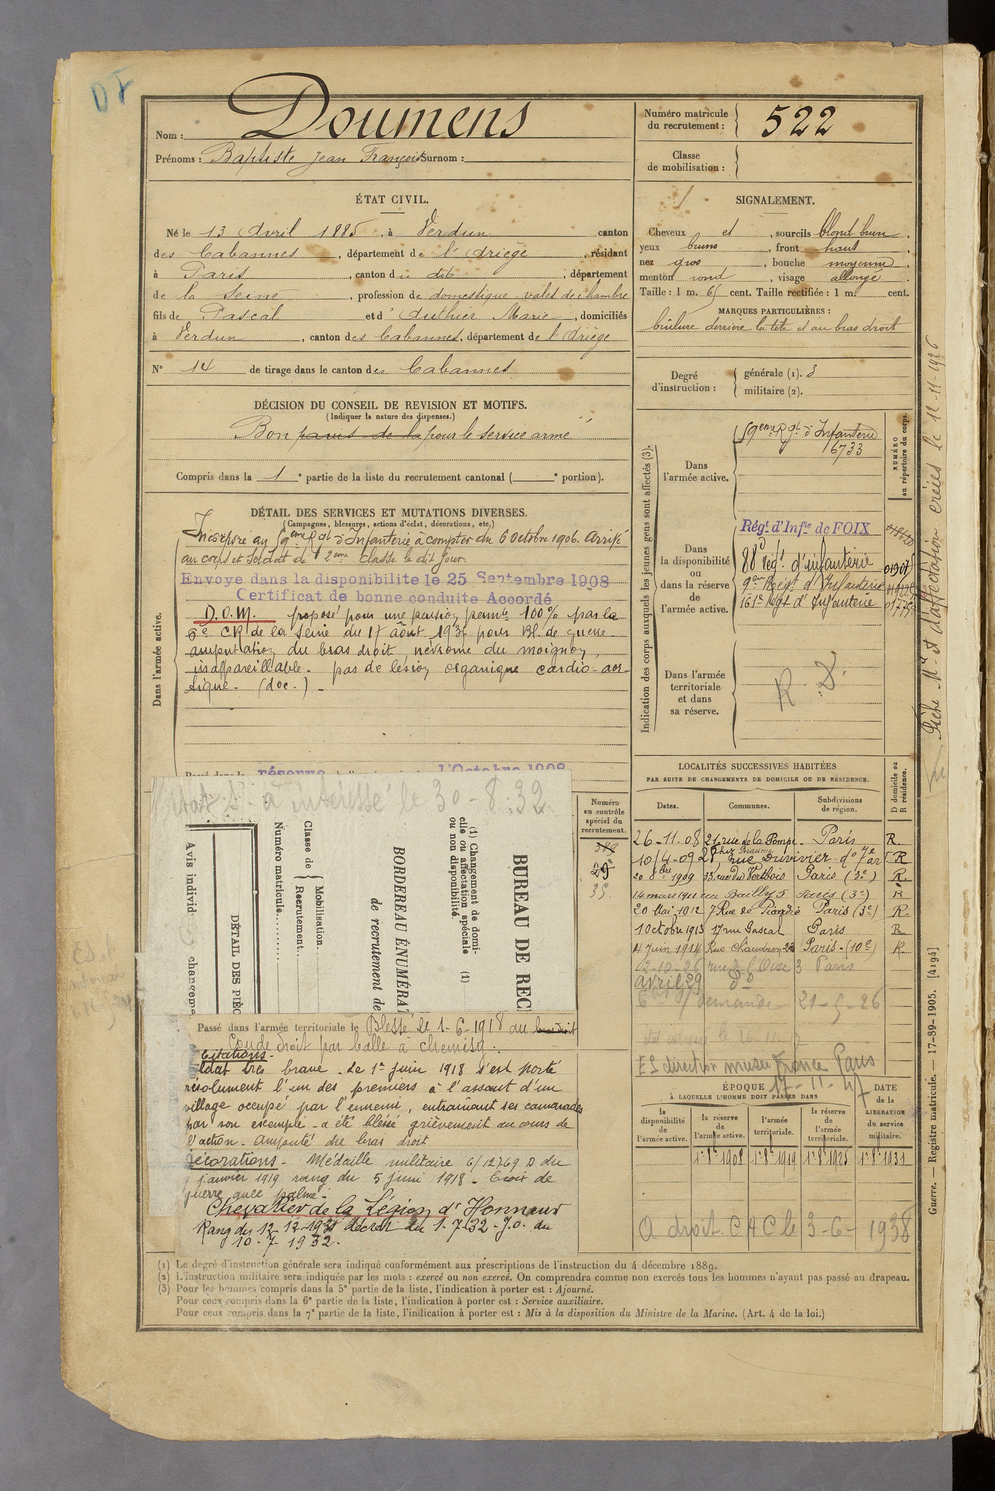 DT
Nom : Doumens
Prénoms : Baptiste Jean François Surnom :
Numéro matricule du recrutement : 522
Classe de mobilisation :
ÉTAT CIVIL.
Né le 13 Avril 1885, à Verdun canton
des Cabannes, département de l'Ariège, résidant
à Paris, canton du dit, département
de la Seine, profession de domestique valet de chambre
fils de Pascal et d' Authier Marie, domiciliés
à Verdun, canton des Cabannes, département de l'Ariège
N° 14 de tirage dans le canton des Cabannes
SIGNALEMENT.
Cheveux et, sourcils blond brun,
yeux bruns, front haut
nez gros, bouche moyenne,
menton rond, visage allongé
Taille : 1 m. 65 cent. Taille rectifiée : 1 m. cent.
MARQUES PARTICULIÈRES :
brûlure derrière la tête et au bras droit
Degré d'instruction : générale (1). 3
militaire (2).
DÉCISION DU CONSEIL DE REVISION ET MOTIFS.
(Indiquer la nature des dispenses.)
Bon pour le service armé
Compris dans la 1e partie de la liste du recrutement cantonal ( e portion).
DÉTAIL DES SERVICES ET MUTATIONS DIVERSES.
(Campagnes, blessures, actions d'éclat, décorations, etc.)
Dans l'armée active.
Incorporé au 59ème Rgt d'Infanterie à compter du 6 Octobre 1906. Arrivé
au corps et soldat de 2ème classe le dit jour.
Envoyé dans la disponibilité le 25 Septembre 1908
Certificat de bonne conduite Accordé
D.O.M. proposé pour une pension permte 100% par la
CR de la Seine du 17 août 193 pour Bl. de guerre
amputation du bras droit, névrome du moignon,
inappareillable. pas de lésion organique cardio-aor-
tique. (doc.)
réserve 1'Octobre 1908
à intéressé le 30-8-32
Indication des corps auxquels les jeunes gens sont affectés (3).
NUMÉRO au répertoire du corps.
Dans l'armée active.
59ème Rgt d'Infanterie
6733
Dans la disponibilité ou dans la réserve de l'armée active.
Régt d'Infie de FOIX
88e régt d'infanterie
9ème Régt d'Infanterie
161e Régt d'Infanterie
Dans l'armée territoriale et dans sa réserve.
R. D.
Fiche Mle et d'affectation créées le 12-11-1926
LOCALITÉS SUCCESSIVES HABITÉES
PAR SUITE DE CHANGEMENTS DE DOMICILE OU DE RÉSIDENCE.
Numéro en contrôle spécial du recrutement.
Dates. Communes. Subdivisions de région. D domicile ou R résidence.
26-11-08 21 rue de la Pompe Paris R
10/4-09 28, rue Duvivier do 7e arrt R
1909 33 rue du Vertbois Paris (3e) R
14 mars 1911 rue Bailly 5 Paris (3e) R
20 Mai 1912 7 Rue de Picardie Paris (3e) R
1 Octobre 1913 17 rue Pascal Paris R
4 Juin 1914 Rue Chaudron 26 Paris (10e) R
12-10-26 rue de l'Oise 3 Paris
avril 29 do
demande 21-5-26
musée France Paris
17-11-47
ÉPOQUE
À LAQUELLE L'HOMME DOIT PASSER DANS
DATE de la LIBÉRATION du service militaire.
la disponibilité de l'armée active. la réserve de l'armée active. l'armée territoriale. la réserve de l'armée territoriale.
1er 8e 1908 1er 8e 1919 1er 8e 1925 1er 8e 1931
A droit CAC le 3-6-1938
Avis individ changeme
DÉTAIL DES PIÈC
Numéro matricule.
Classe de Mobilisation. Recrutement.
BORDEREAU ÉNUMÉRA
de recrutement de
(1) Changement de domicile ou affectation spéciale ou non disponibilité. (1)
BUREAU DE REC
Passé dans l'armée territoriale le Blessé le 1-6-1918 au bras droit
Coude droit par balle à Chemisy.
Citations.
soldat très brave. Le 1er juin 1918 s'est porté
résolument l'un des premiers à l'assaut d'un
village occupé par l'ennemi, entraînant ses camarades
par son exemple - a été blessé grièvement au cours de
l'action. Amputé du bras droit
Décorations. Médaille militaire 6/12769 D du
janvier 1919 rang du 5 juin 1918 - Croix de
guerre avec palme.
Chevalier de la Légion d'Honneur
Rang du 12-12-1931 décret du 1.7-32 - J.o. du
10.7.1932.
(1) Le degré d'instruction générale sera indiqué conformément aux prescriptions de l'instruction du 4 décembre 1889.
(2) L'instruction militaire sera indiquée par les mots : exercé ou non exercé. On comprendra comme non exercés tous les hommes n'ayant pas passé au drapeau.
(3) Pour les hommes compris dans la 5e partie de la liste, l'indication à porter est : Ajourné.
Pour ceux compris dans la 6e partie de la liste, l'indication à porter est : Service auxiliaire.
Pour ceux compris dans la 7e partie de la liste, l'indication à porter est : Mis à la disposition du Ministre de la Marine. (Art. 4 de la loi.)
Guerre. — Registre matricule. — 17-89-1905. [4194]